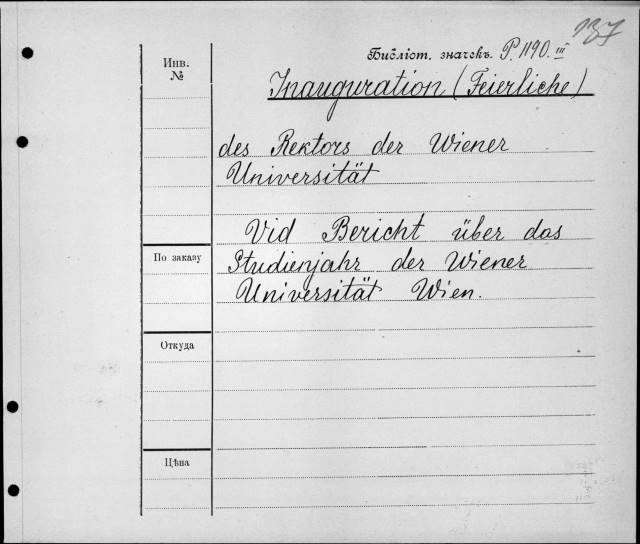 137
Инв.
№
Библіот. значекъ. P. 1190. III
Inauguration (Feierliche)
des Rektors der Wiener
Universität
Vid Bericht über das
По заказу
Studienjahr der Wiener
Universität Wien.
Откуда
Цѣна